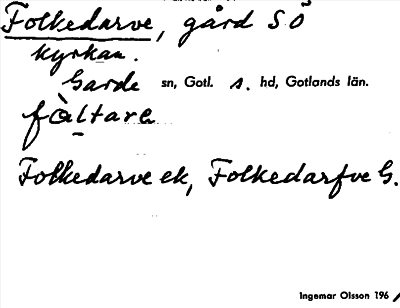 Folkedarve, gård SÖ
kyrkan.
Garde sn, Gotl. s. hd, Gotlands län.
fàltarε
Folkedarve ek, Folkedarfve G.
Ingemar Olsson 196